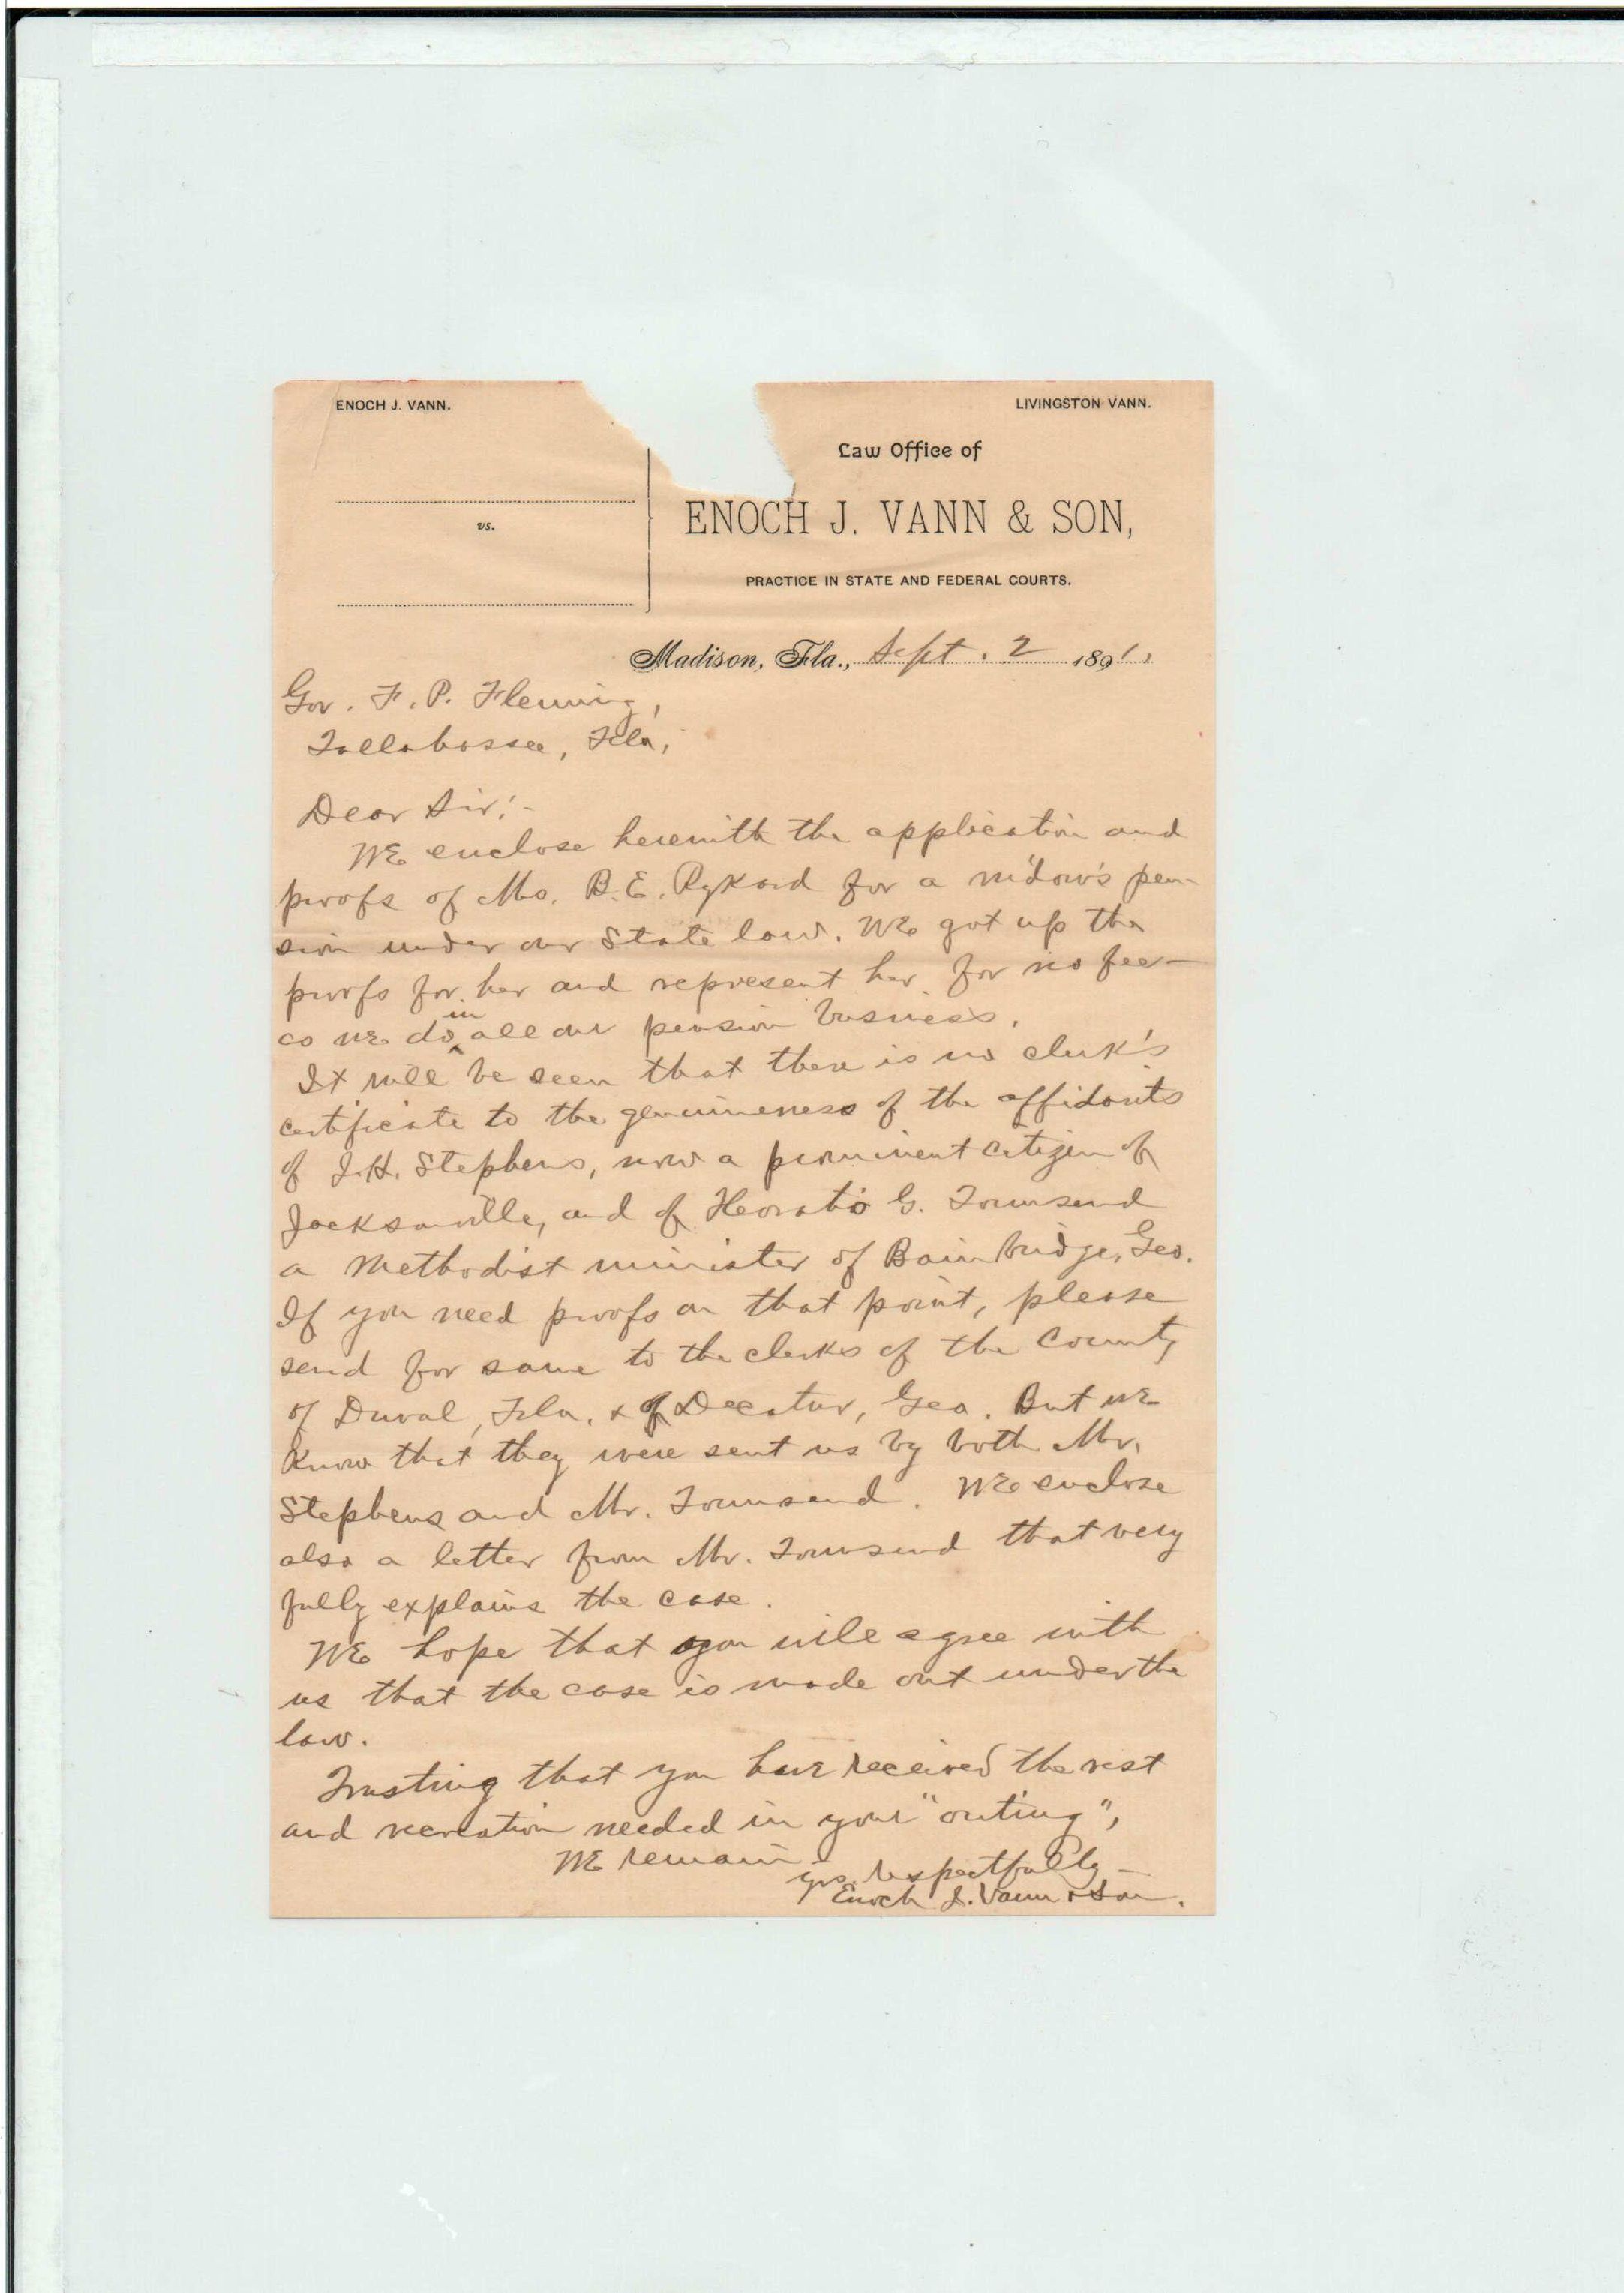 ENOCH J. VANN.
LIVINGSTON VANN.
Law Office of
vs.
ENOCH J. VANN & SON,
PRACTICE IN STATE AND FEDERAL COURTS.
Madison, Fla., Sept. 2 1891.
Gov. F. P. Fleming,
Tallahassee, Fla,
Dear Sir:-
We enclose herewith the application and
proofs of Mrs. B. E. Rykard for a widow's pen-
sion under our State law. We got up the
proofs for her and represent her for no fee—
as we do in all our pension business.
It will be seen that there is no clerk's
certificate to the genuineness of the affidavits
of J. H. Stephens, now a prominent citizen of
Jacksonville, and of Horatio G. Townsend
a Methodist minister of Bainbridge, Geo.
If you need proofs on that point, please
send for same to the clerks of the County
of Duval, Fla. & of Decatur, Geo. But we
know that they were sent us by both Mr.
Stephens and Mr. Townsend. We enclose
also a letter from Mr. Townsend that very
fully explains the case.
We hope that you will agree with
us that the case is made out under the
law.
Trusting that you have received the rest
and recreation needed in your "outing",
We remain
yrs. respectfully—
Enoch J. Vann & Son.